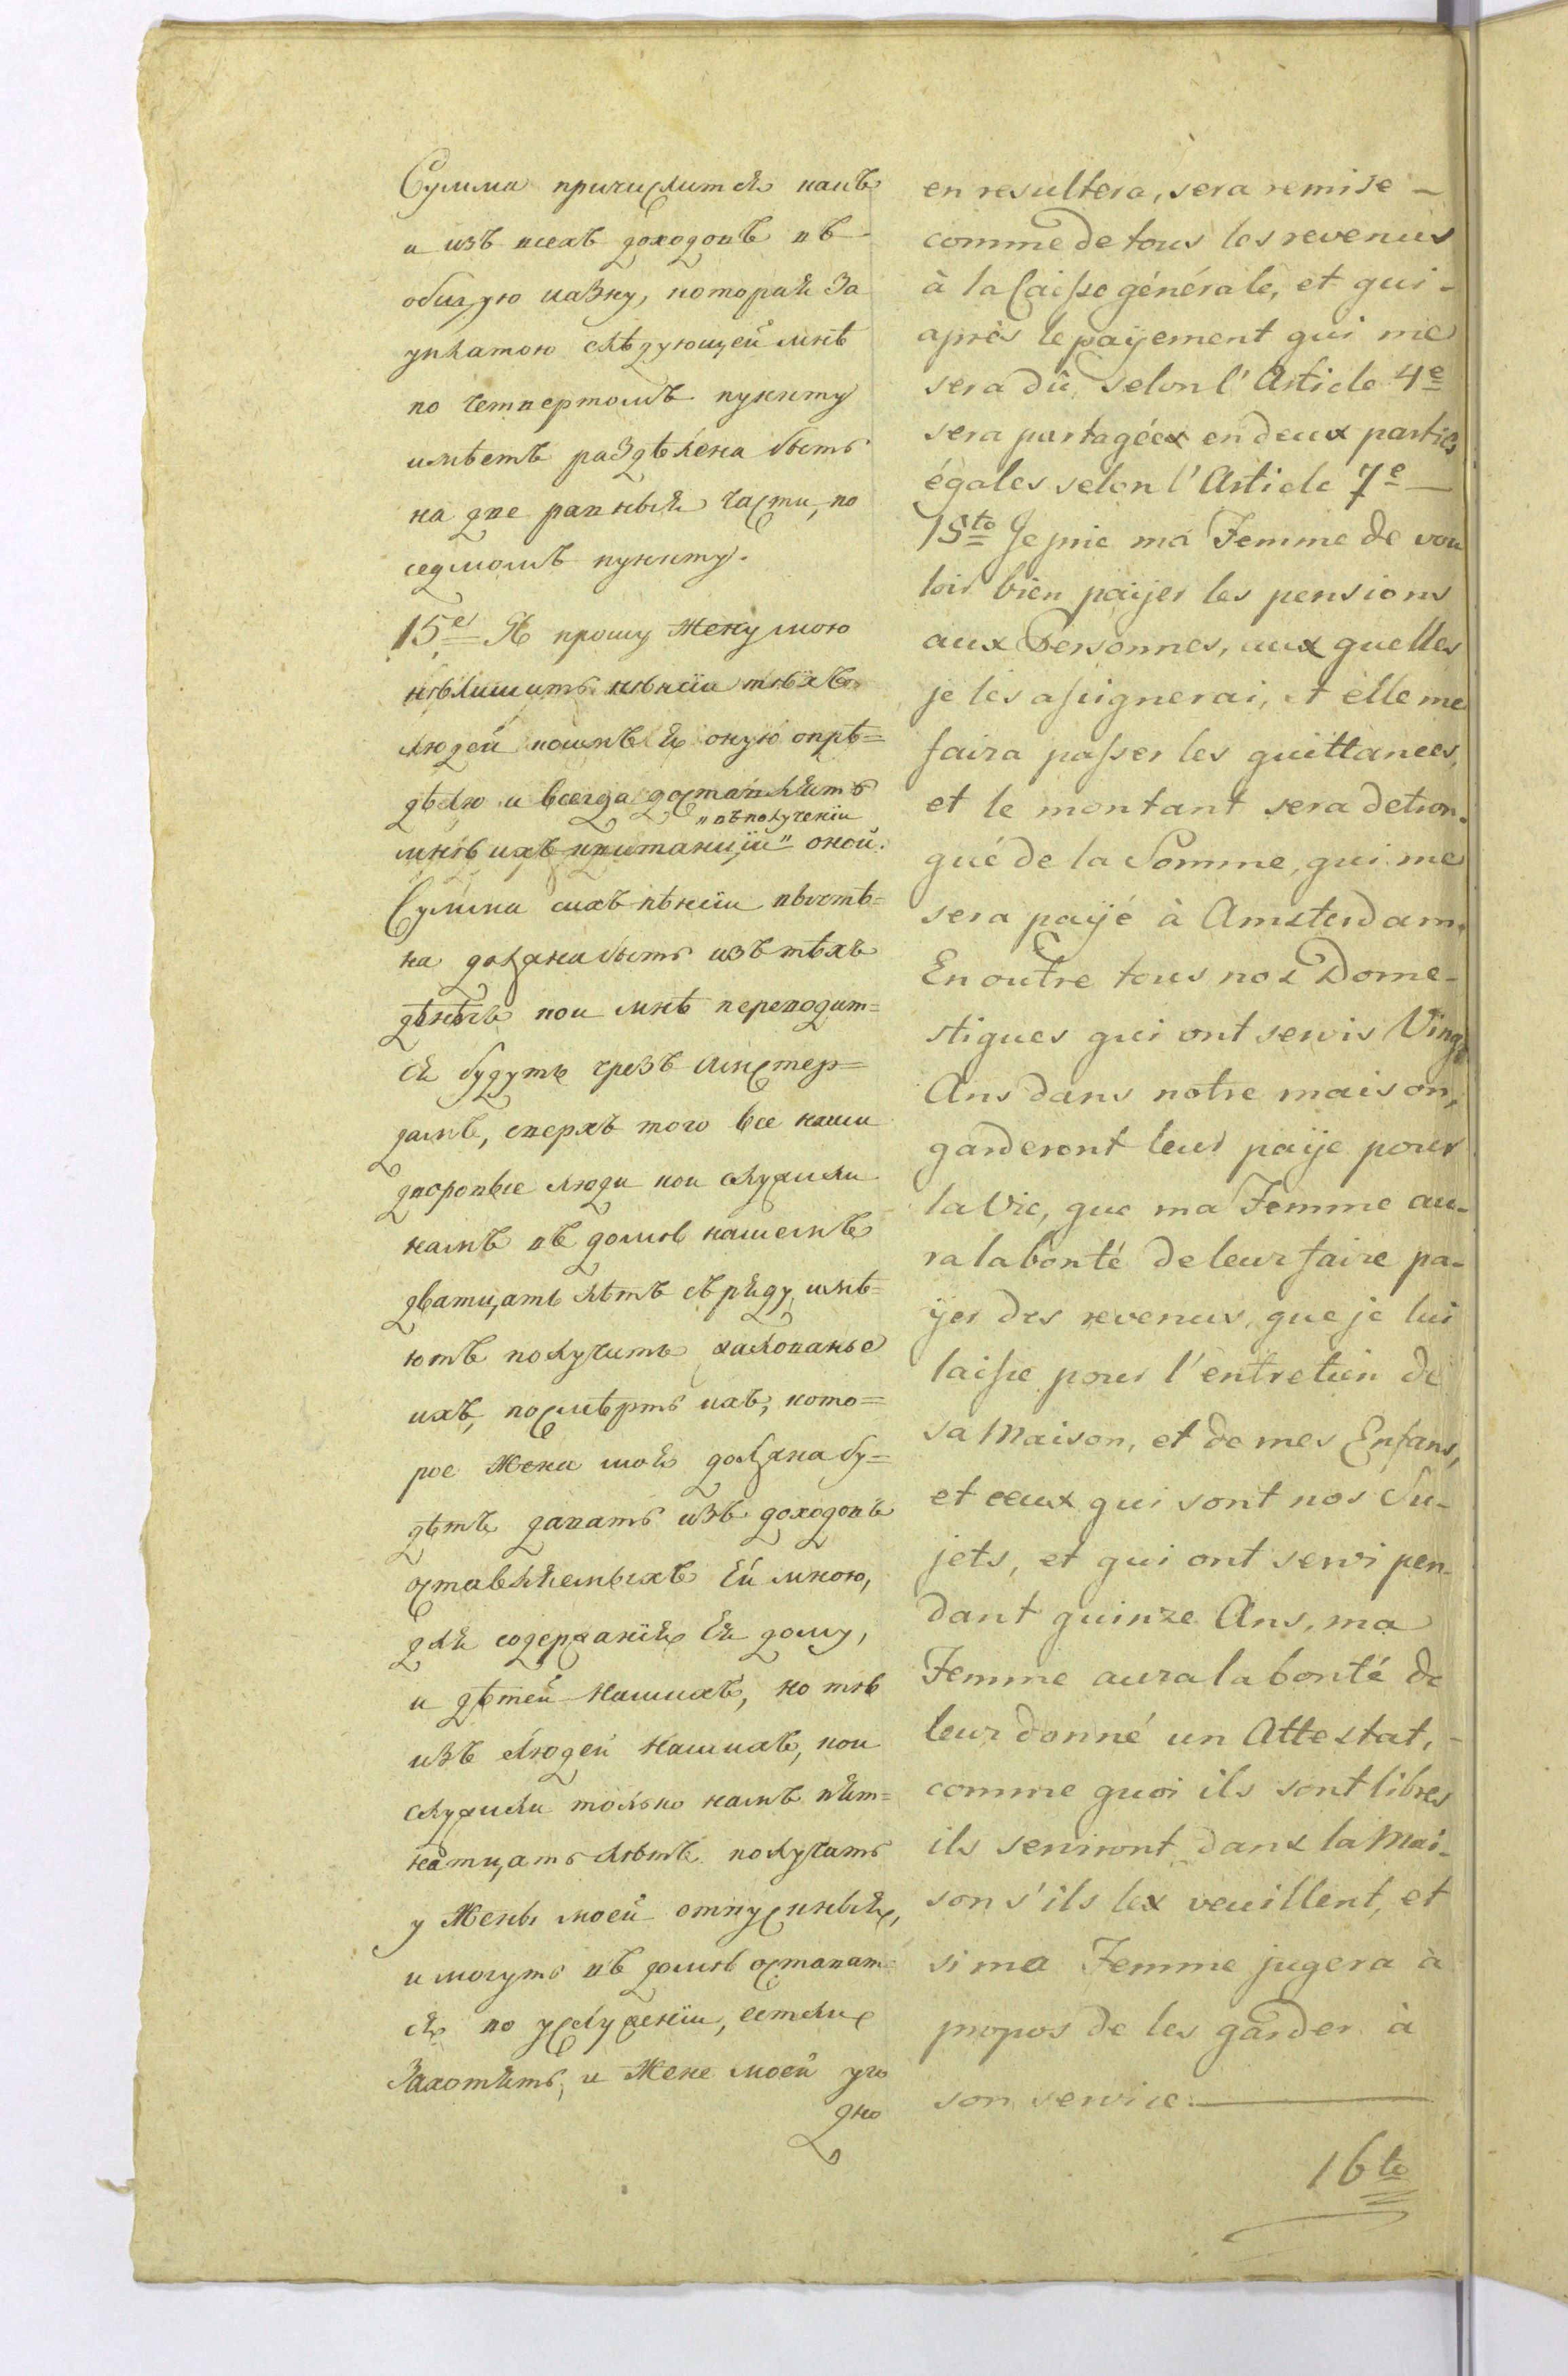 Сумма причислится какъ
и изъ всехъ доходовъ въ
общую казну, которая за
уплатою слѣдующей мнѣ
по четвертомъ пункту
имѣетъ раздѣлена быть
на две равныя части, по
седмомъ пункту.
15е Я прошу жену мою
тѣхъ
людей коимъ я оную опрѣ=
дѣлю и всегда доставлять
"въ получении
мнѣ ихъ квитанціи" оной.
Сумма сихъ пѣнсіи
на должна быть изъ тѣхъ
дѣнѣгъ кои мнѣ переводит=
ся будутъ чрезъ Амстер=
дамъ, сверхъ того все наши
дворовые люди кои служили
намъ въ домѣ нашемъ
дватцать лѣтъ съ ряду имѣ=
ютъ получить жалованье
ихъ, по смѣрть ихъ, кото=
рое жена моя должна бу=
дѣтъ давать изъ доходовъ
оставляемыхъ Ей мною,
для содержанія Ея дому,
и дѣтей нашихъ, но тѣ
изъ людей нашихъ, кои
служили только намъ пят=
натцать лѣтъ получатъ
у жены моей отпускныя,
и могутъ въ домѣ остават=
ся по услужении, естли
Захотятъ, и Жене моей уго
дно
en resultera, sera remise –
comme de tous les revenus
à la Caisse générale, et qui –
après le payement qui me
sera dû, selon l'Article 4e
sera partagéex en deux parties
égales selon l'Article 7e —
15to Je prie ma Femme de vou
loir bien païjer les pensions
aux Personnes, aux quelles
je les assignerai, et elle me
faira passer les quittances,
et le montant sera detron-
qué de la Somme, qui me
sera païjé à Amsterdam.
En outre tous nos Dome-
stiques qui ont servis Vingt
Ans dans notre maison,
garderont leur païje pour
la Vie, que ma Femme au-
ra la bonté de leur faire pa-
ÿer des revenus, que je lui
laisse pour l'entretien de
sa Maison, et de mes Enfans,
et ceux qui sont nos Su-
jets, et qui ont servi pen-
dant quinze Ans, ma
Femme aura la bonté de
leur donné un Attestat, –
comme quoi ils sont libres
ils serviront dans la Mai-
son s'ils lex veuillent, et
si ma Femme jugera à
propos de les garder à
son service. —
16to